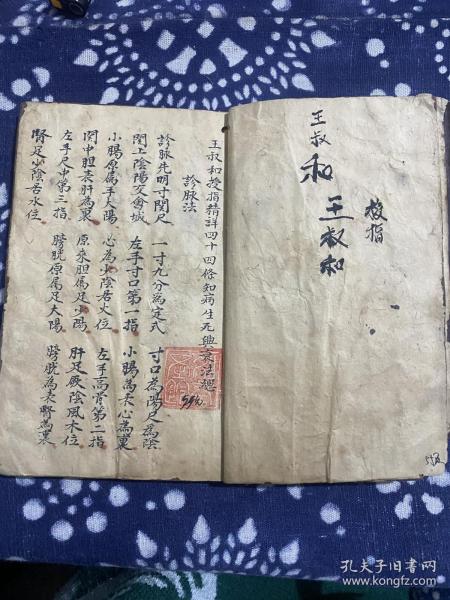 王叔
和
王叔和
授指
王叔和授指精詳四十四條知病生死興衰法總
診脉法
診脉先明寸関尺 一寸九分為定式 寸口為陽尺為陰
関上陰陽交會城 左手寸口第一指 小腸為表心為裏
小腸原属手太陽 心為少陰君火位 左手高骨第二指
関中胆表肝為裏 原來胆属足少陽 肝足厥陰風木位
左手尺中第三指 膀胱原属足太陽 膀胱為表腎為裏
腎足少陰居水位
孔夫子旧书网
www.kongfz.com